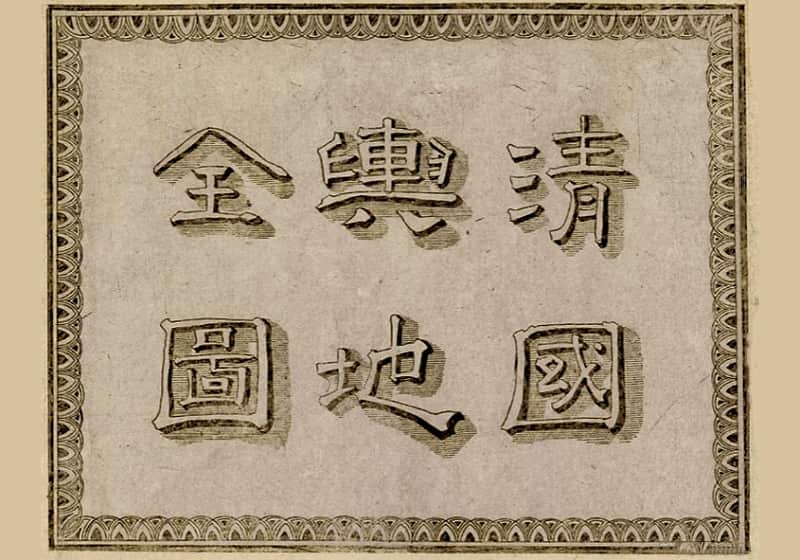 清國
輿地
全圖